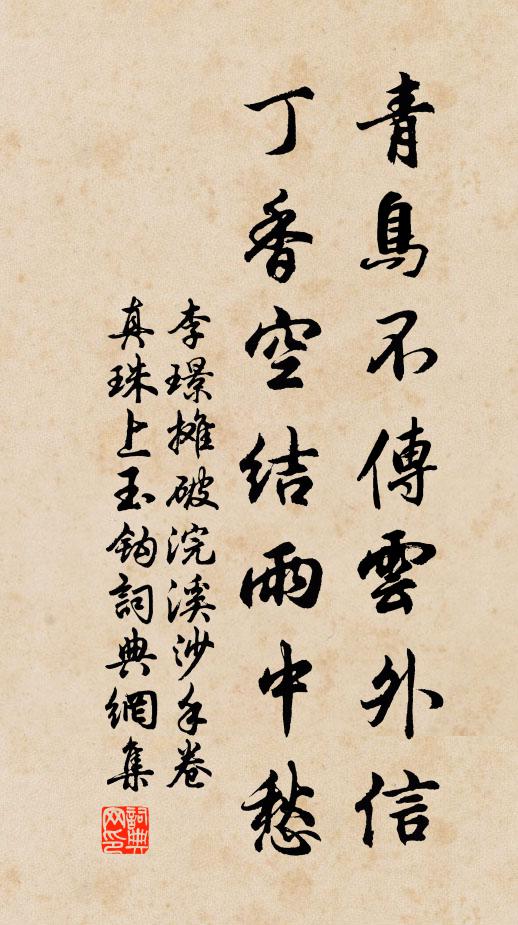 青鳥不傳雲外信
丁香空結雨中愁
李璟攤破浣溪沙手卷
真珠上玉鉤詞典網集
詞典
网印